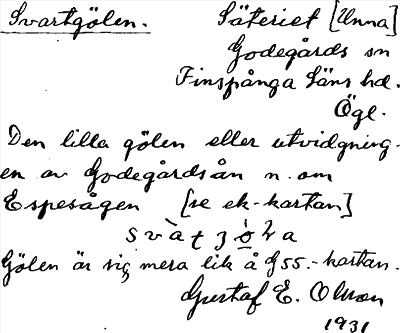 Svartgölen. Säteriet [Unna]
Godegårds sn
Finspånga läns hd.
Ögl.
Den lilla gölen eller utvidgning-
en av Godegårdsån n. om
Espesågen [se ek-kartan]
Gölen är sig mera lik å G55.-kartan.
Gustaf E. Olsson
1931